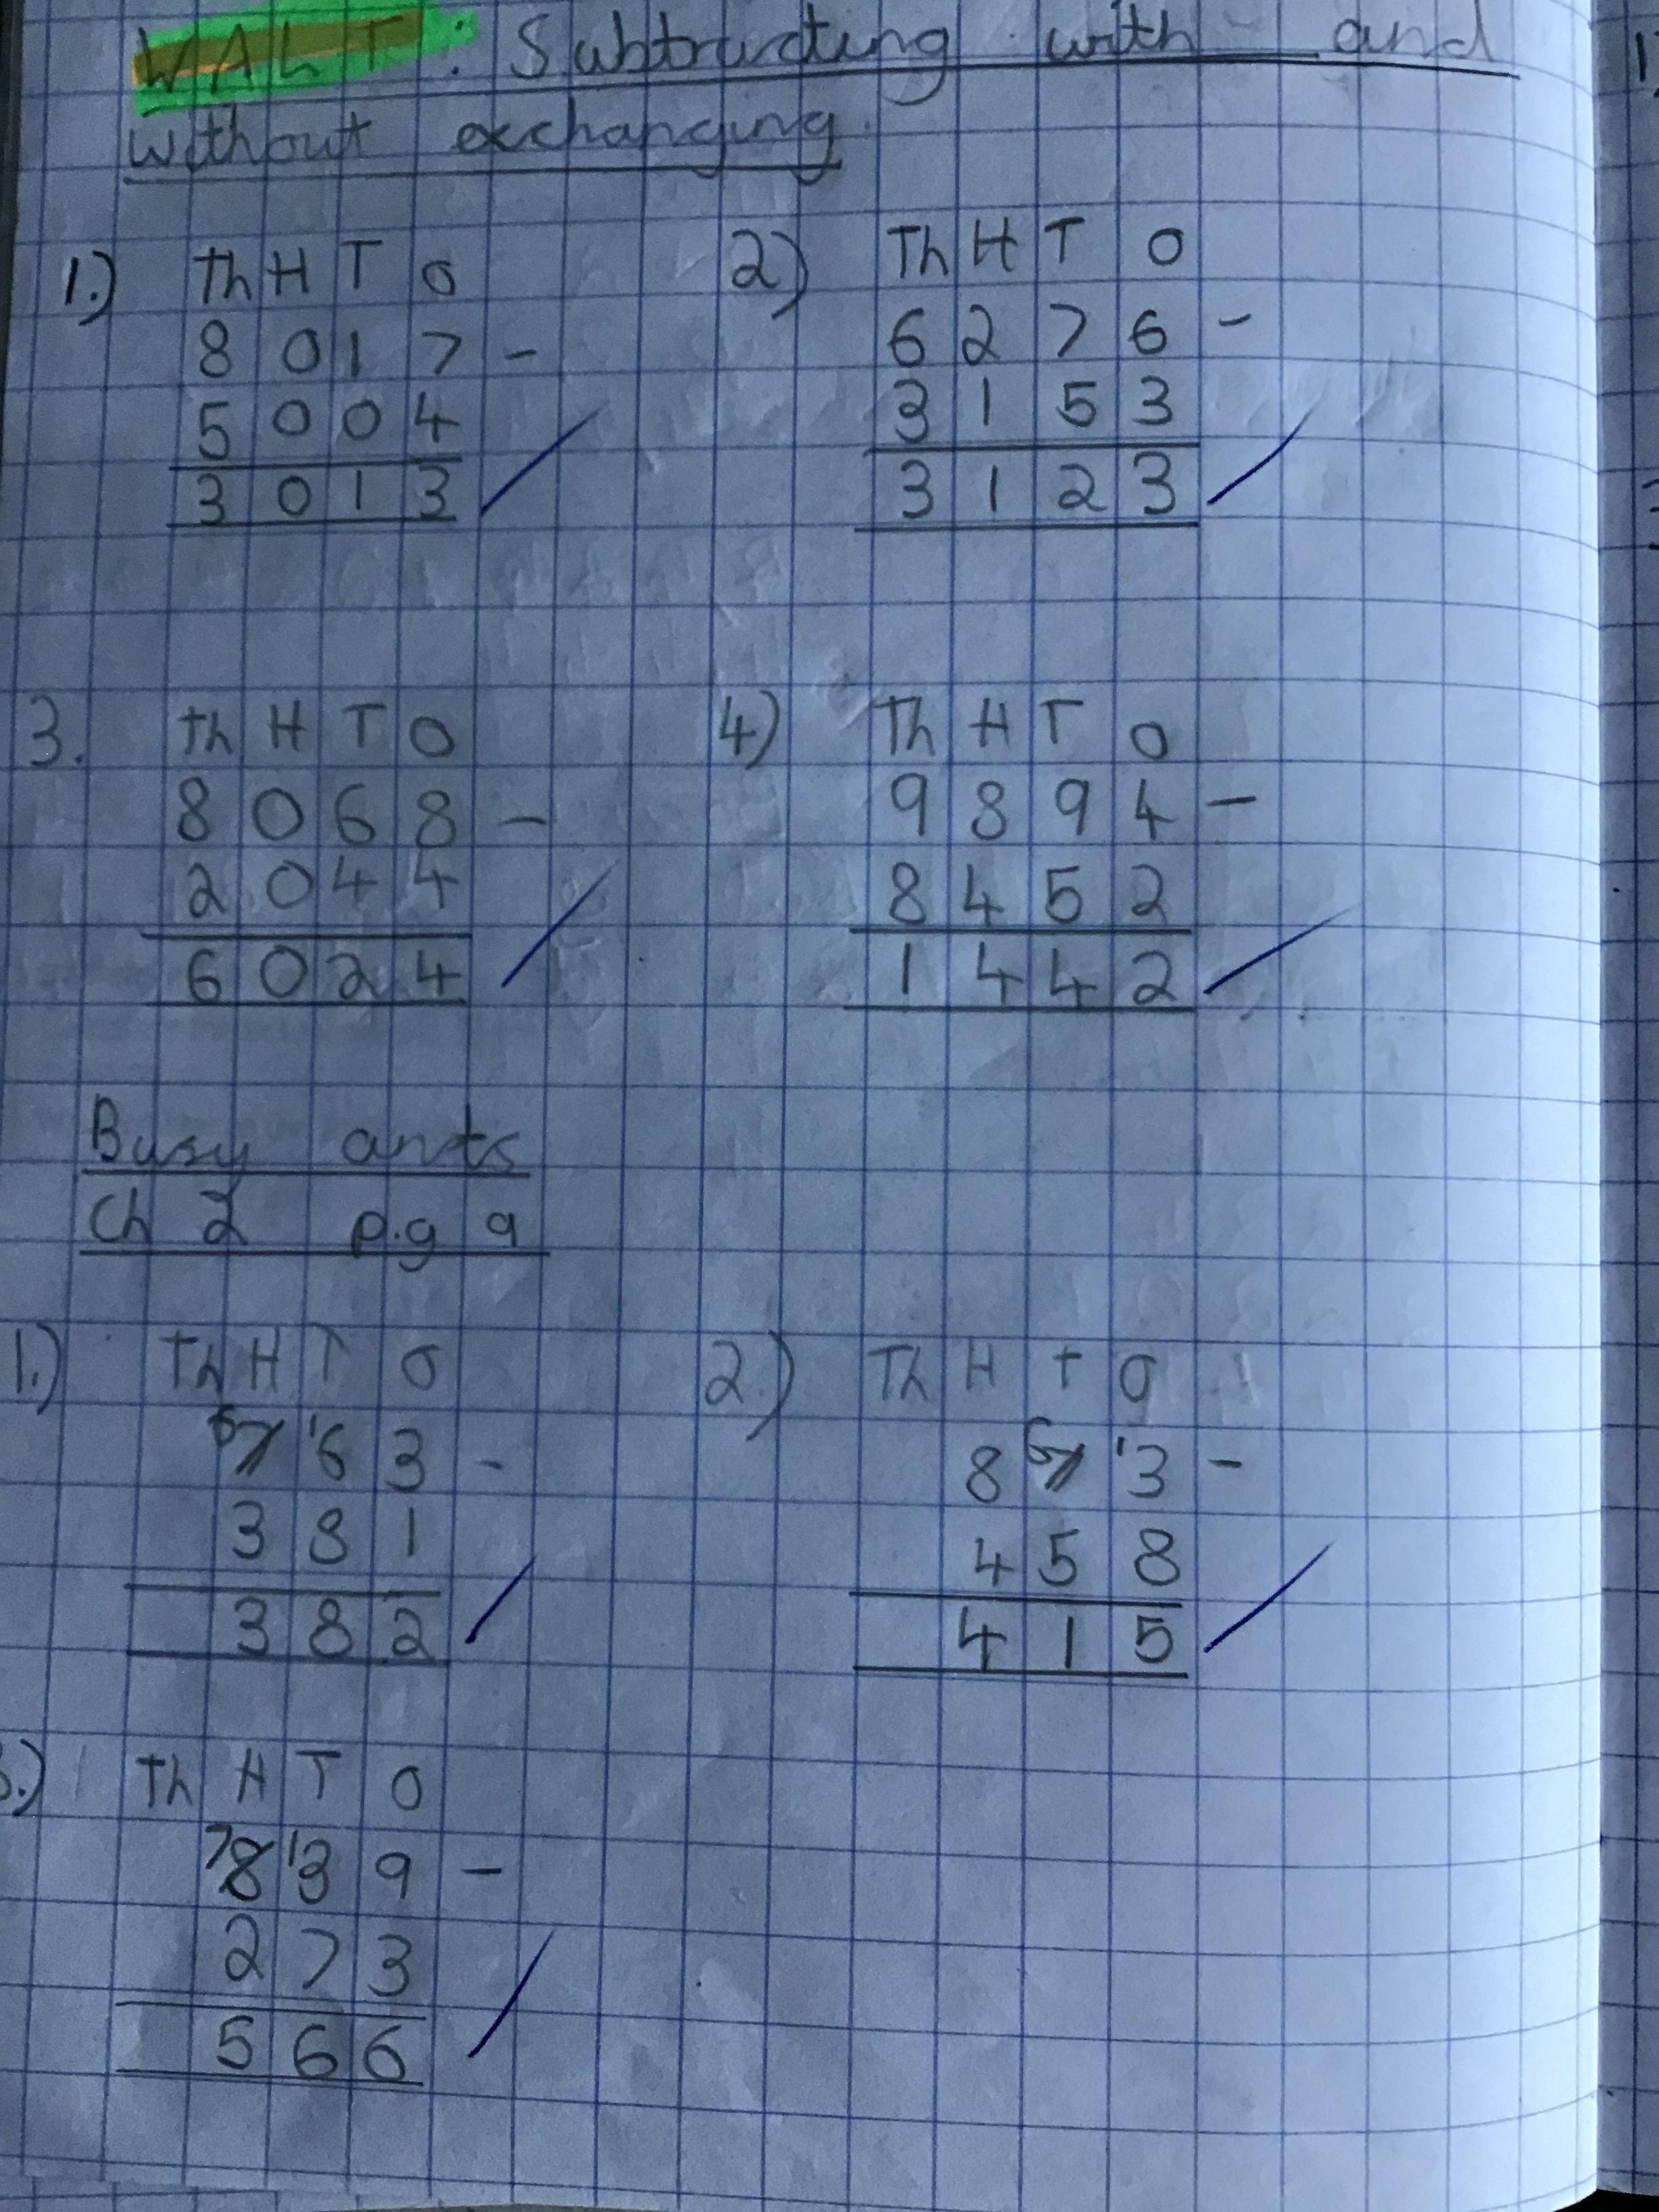 WALT: Subtracting with and
without exchanging.
1.) Th H T O
8 0 1 7 -
5 0 0 4
3 0 1 3
2) Th H T O
6 2 7 6 -
3 1 5 3
3 1 2 3
3. Th H T O
8 0 6 8 -
2 0 4 4
6 0 2 4
4) Th H T O
9 8 9 4 -
8 4 5 2
1 4 4 2
Busy ants
Ch 2 p.g 9
1.) Th H T O
6 7 1 6 3 -
3 8 1
3 8 2
2.) Th H T O
8 6 7 1 3 -
4 5 8
4 1 5
3.) Th H T O
7 8 1 3 9 -
2 7 3
5 6 6